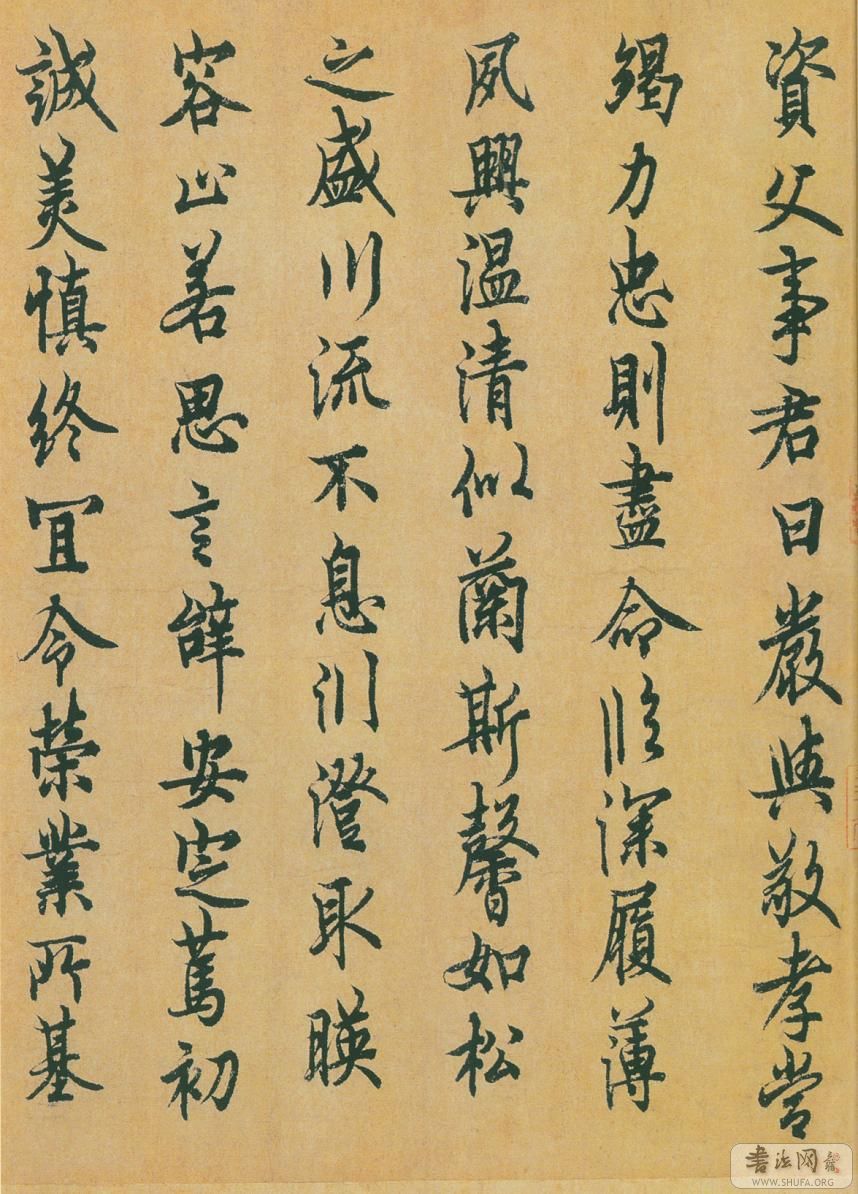 資父事君曰嚴與敬孝當
竭力忠則盡命臨深履薄
夙興温清似蘭斯馨如松
之盛川流不息淵澄取暎
容止若思言辭安定篤初
誠美慎終宜令榮業所基
書法网
WWW.SHUFA.ORG